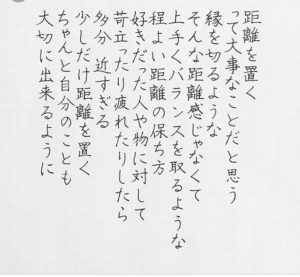 距離を置く
って大事なことだと思う
縁を切るような
そんな距離感じゃなくて
上手くバランスを取るような
程よい距離の保ち方
好きだった人や物に対して
苛立ったり疲れたりしたら
多分 近すぎる
少しだけ距離を置く
ちゃんと自分のことも
大切に出来るように